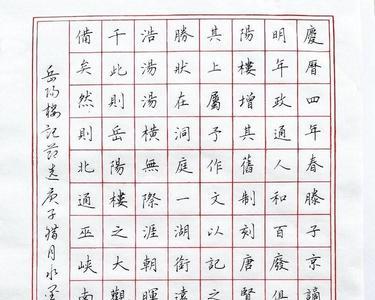 慶曆四年春滕子京謫
明年政通人和百廢俱
陽樓增其舊制刻唐賢
其上屬予作文以記之
勝狀在洞庭一湖銜遠
浩湯湯橫無際涯朝暉
千此則岳陽樓之大觀
備矣然則北通巫峽南
岳阳楼記節选庚子腊月水墨